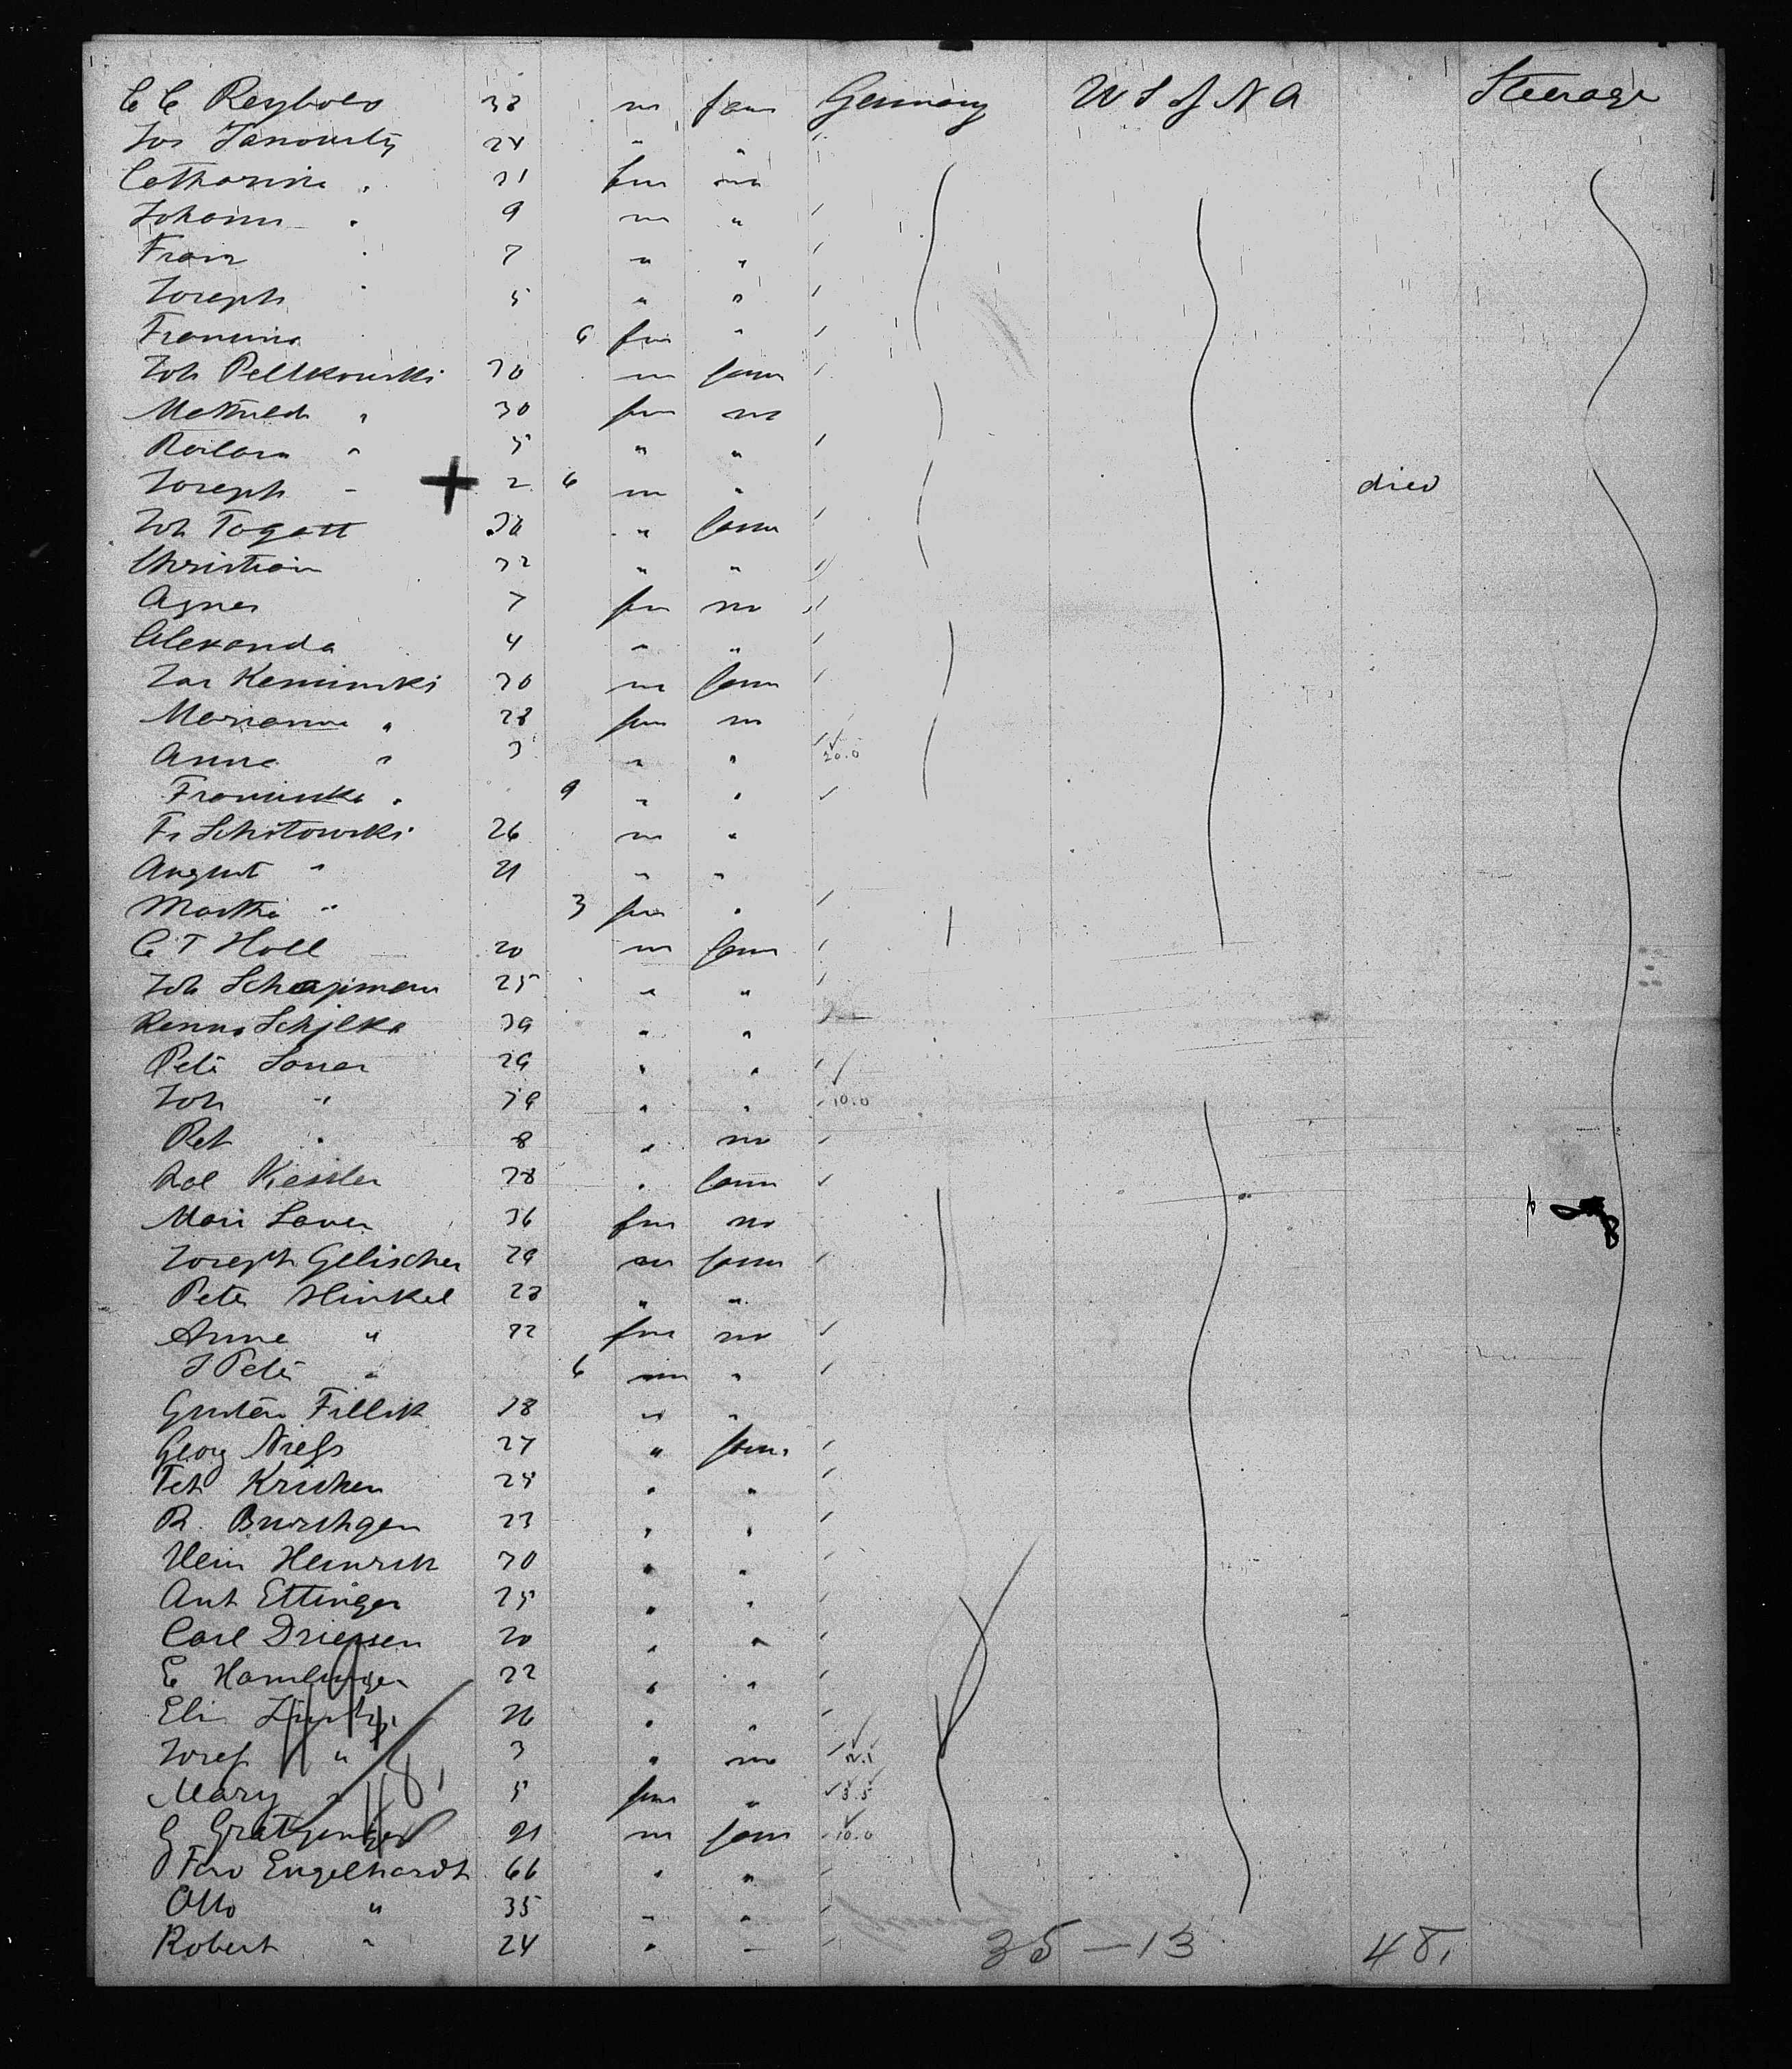 C C Reybolo 38 m farm Germany U S of N A Steerage
Jos Janowsky 24 " "
Catharina " 31 fm no
Johann " 9 m "
Franz " 7 " "
Joseph " 5 " "
Franzina 6 fm "
Joh Peltkowski 30 m farm
Mathild " 30 fm no
" 5 " "
Joseph " 2 6 m " died
Joh Togatt 30 " farm
Christian 32 " "
Agnes 7 fm no
Alexanda 4 " "
Jas Keminski 30 m farm
Marianna " 28 fm no
Anna " 3 " " 20.0
Franziska " 9 " "
Fr Schotowski 26 m "
August " 21 " "
Martha " 3 fm "
C T Holl 20 m farm
Joh Schapman 25 " "
Schjlka 39 " "
Pete Sauer 29 " "
Joh " 39 " " 10.0
Pet " 8 " no
Kessler 38 " farm
Mari Lauer 36 fm no
Joseph Gelischer 29 m farm
Pete Hinkel 28 " "
Anna " 22 fm no
J Pete " 6 m "
Gustav Fillik 18 " "
Georg Niess 27 " farm
Pet Krischen 24 " "
R. Burschgen 23 " "
Hein Heinrich 30 " "
Ant Ettinger 25 " "
Carl Driessen 20 " "
E Hamburger 22 " "
Eli 26 " "
Josef " 3 " no
Mary " 5 fm " 3.5
G Gratzinger 21 m farm 10.0
Ferd Engelhardt 66 " "
Otto " 35 " "
Robert " 24 " "
35 — 13 48.